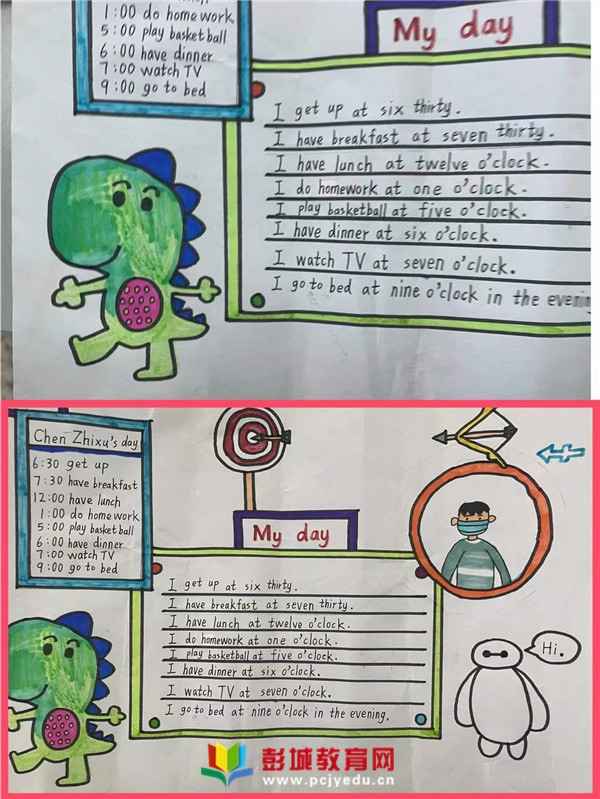 1:00 do homework
5:00 play basketball
6:00 have dinner
7:00 watch TV
9:00 go to bed
My day
I get up at six thirty.
I have breakfast at seven thirty.
I have lunch at twelve o'clock.
I do homework at one o'clock.
I play basketball at five o'clock.
I have dinner at six o'clock.
I watch TV at seven o'clock.
I go to bed at nine o'clock in the evening
Chen Zhixu's day
6:30 get up
7:30 have breakfast
12:00 have lunch
1:00 do homework
5:00 play basketball
6:00 have dinner
7:00 watch TV
9:00 go to bed
My day
I get up at six thirty.
I have breakfast at seven thirty.
I have lunch at twelve o'clock.
I do homework at one o'clock.
I play basketball at five o'clock.
I have dinner at six o'clock.
I watch TV at seven o'clock.
I go to bed at nine o'clock in the evening.
Hi.
彭城教育网
www.pcjyedu.cn